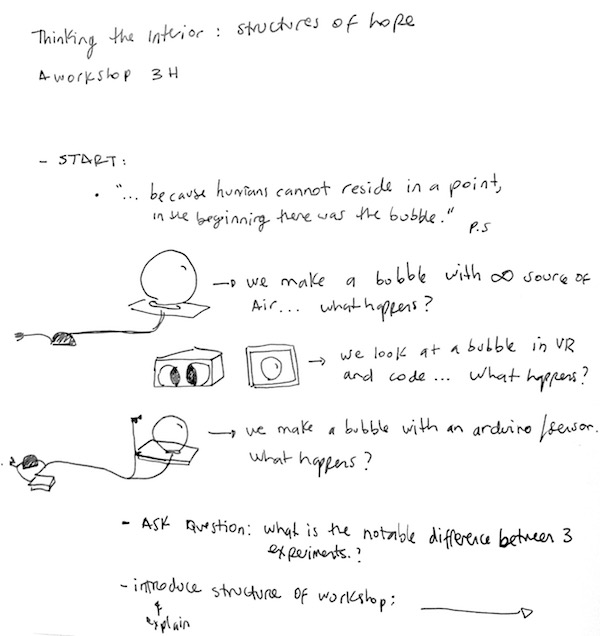 Thinking the Interior : structures of hope
A workshop 3H
- START:
• "... because humans cannot reside in a point,
in the beginning there was the bubble."
P.S
→ we make a bubble with ∞ source of
Air... what happens?
→ we look at a bubble in VR
and code... what happens?
→ we make a bubble with an arduino/sensor.
what happens?
- ASK Question: what is the notable difference between 3
experiments.?
- introduce structure of workshop: →
&
explain